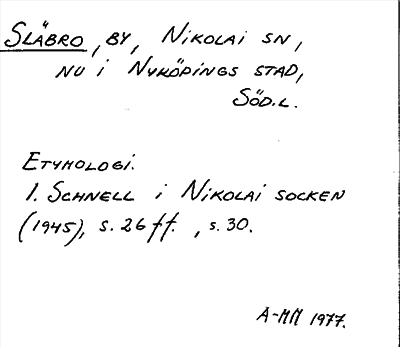 SLÄBRO, BY, NIKOLAI SN,
NU I NYKÖPINGS STAD,
SÖD.L.
ETYMOLOGI.
I. SCHNELL i NIKOLAI SOCKEN
(1945), s. 26 ff. , s. 30.
A-MM 1977.